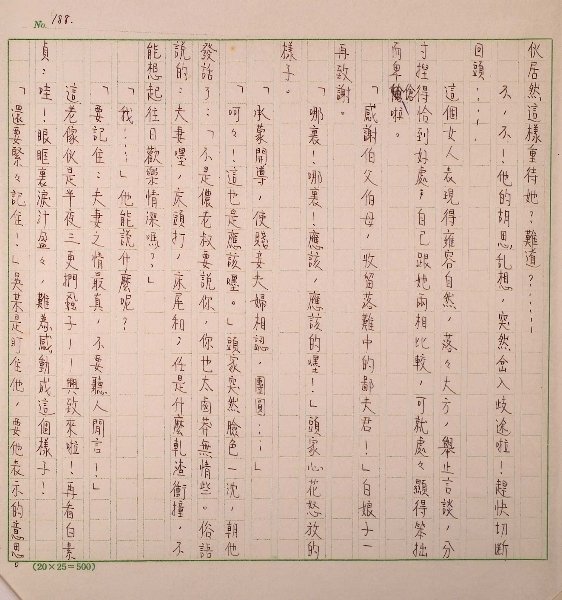 No. 188.
伙居然這樣重待她？難道？……
不，不！他的胡思乱想，突然岔入歧途啦！趕快切斷
回頭……
這個女人表現得雍容自然，落々大方，舉止言談，分
寸捏得恰到好處，自己跟她兩相比較，可就處々顯得笨拙
而卑傖啦。
「感謝伯父伯母，收留落難中的鄙夫君！」白娘子一
再致謝。
「哪裏！哪裏！應該，應該的嘿！」頭家心花怒放的
樣子。
「承蒙開導，使賤妾夫婦相認，團圓……」
「呵々！這也是應該嘿。」頭家突然臉色一沈，朝他
發話了：「不是儂老叔要說你，你也太鹵莽無情些。俗語
說的：夫妻嘿，床頭打，床尾和；任是什麼軋渣衝撞，不
能想起往日歡樂情深嗎？」
「我……」他能說什麼呢？
「要記住：夫妻之情最真，不要聽人閒言！」
這老傢伙是半夜三更捫蝨子！！興致來啦！再看白素
貞：哇！眼眶裏淚汁盈々，難為感動成這個樣子！
「還要緊々記住！」吳某是盯住他，要他表示的意思。
(20×25=500)